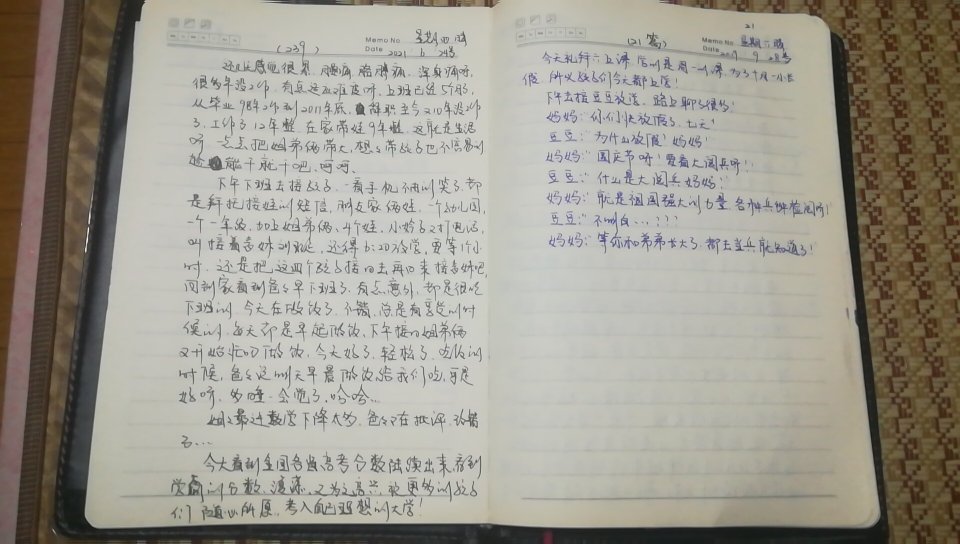 (229)
Memo No. 星期四 晴
Date 2021 6 24号
还是感觉很累,腿痛 胳膊痛,浑身痛呀,
很多年没工作,有点适应难度呀,上班已经5个月,
从毕业98年工作到2011年底,辞职至今210年没工作
了,工作了12年整,在家带娃9年整,这就是生活
呀,一点点把姐弟俩带大,想想带孩子也不容易的
能干就干吧,呵呵。
下午下班去接孩子,一看手机不由的笑了,都
是拜托接娃的短信,朋友家俩娃,一个幼儿园,
一个一年级,加上姐弟俩,4个娃,小妹又打电话,
叫接最意妹训班,还得6:20放学,要等1个小
时,还是把这四个孩子接回去再回来接意妹吧,
回到家看到爸爸早下班了,有点意外,都是很晚
下班的,今天在做饭了,不错,总是有享受的时
候的,每天都是早起做饭,下午接回姐弟俩
又开始忙叨做饭,今天好了,轻松了,吃饭的
时候,爸爸说明天早晨做饭给我们吃,真是
好呀,多睡一会觉了,哈哈...
姐姐最近数学下降太多,爸爸在批评,改错
了...
今天看到全国各省高考分数陆续出来,看到
学霸的分数,羡慕,又为之高兴,祝更多的孩子
们随心所愿,考入自己理想的大学!
21
(21篇)
Memo No. 星期六 晴
Date 2019 9 28号
今天礼拜六上课,信的是周一的课,为了十月一小长
假 所以孩子们今天都上学!
下午去接豆豆放学,路上聊了很多!
妈妈:"你们快放假了,七天!
豆豆:"为什么放假?妈妈!
妈妈:"国庆节呀!要看大阅兵呀!
豆豆:"什么是大阅兵妈妈!
妈妈:"就是祖国强大的力量,各种兵种检阅呀!
豆豆:"不明白...???
妈妈:"等你和弟弟长大了,都去当兵就知道了!